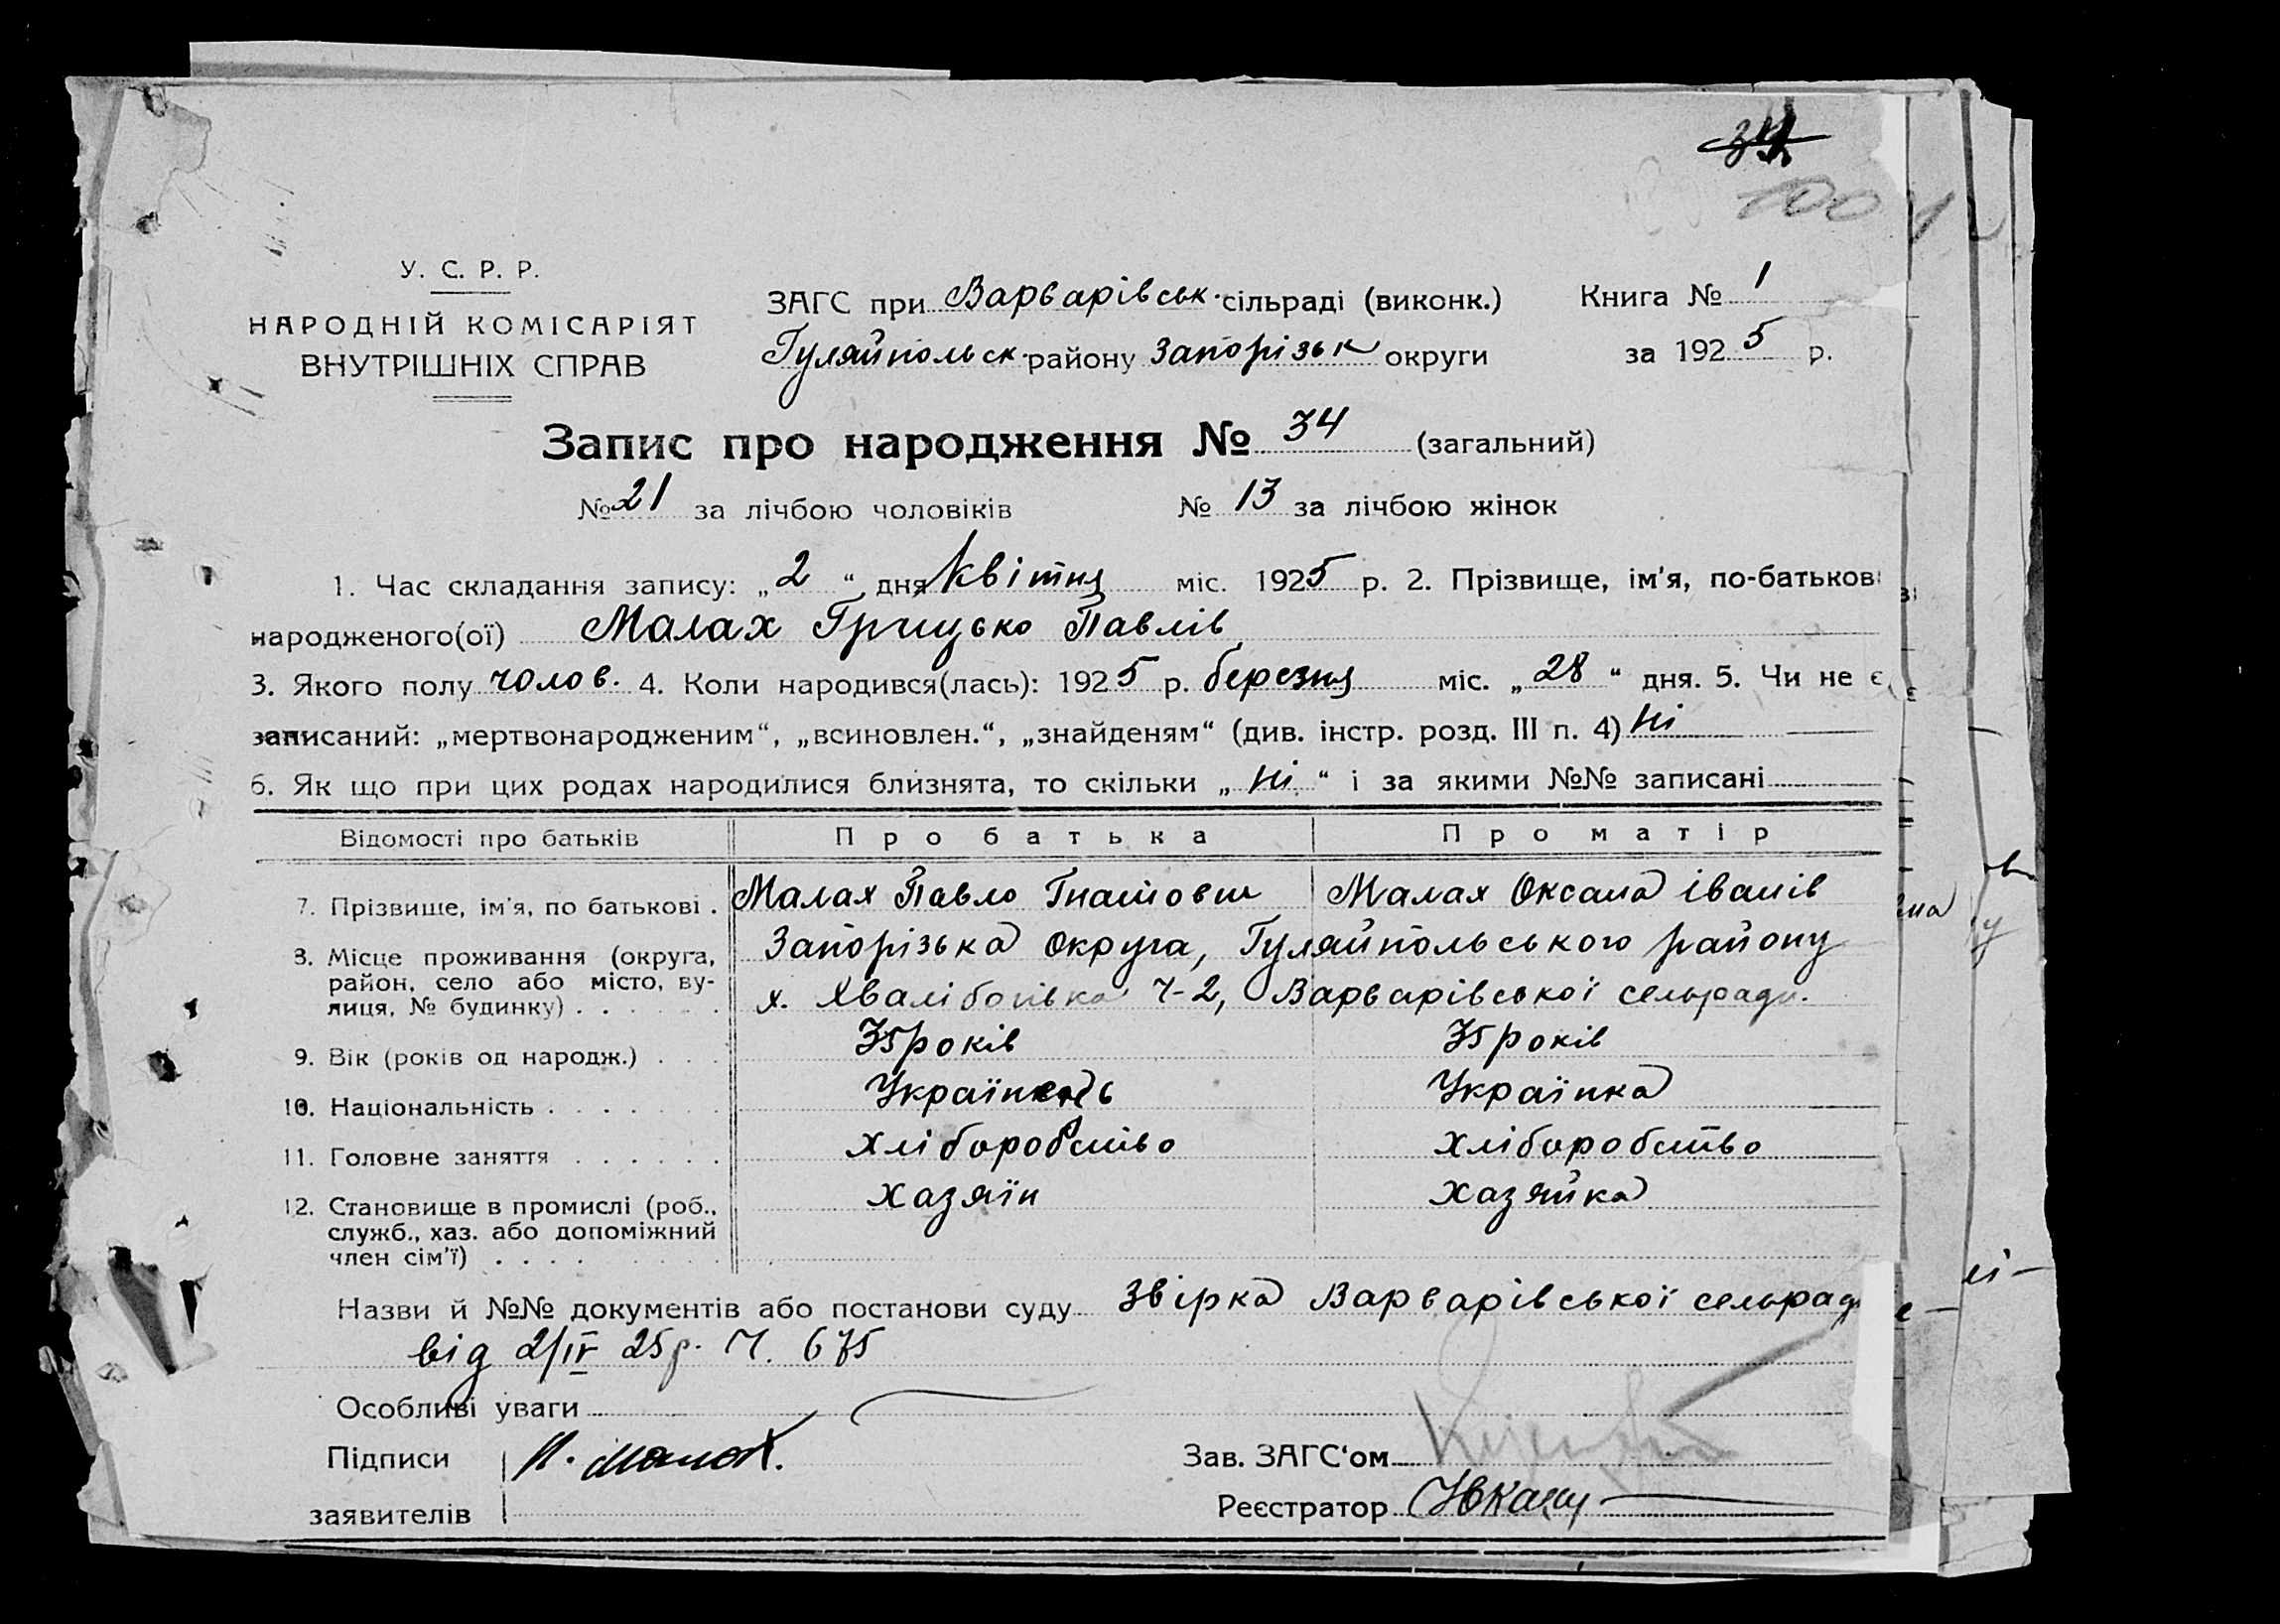 34
100
У. С. Р. Р.
НАРОДНІЙ КОМІСАРІЯТ
ВНУТРІШНІХ СПРАВ
ЗАГС при Варварівськ. сільраді (виконк.)
Гуляйпольск. району Запорізьк округи
Книга № 1
за 1925 р.
Запис про народження № 34 (загальний)
№ 21 за лічбою чоловіків № 13 за лічбою жінок
1. Час складання запису: „2“ дня Квітня міс. 1925 р. 2. Прізвище, ім'я, по-батькові
народженого(ої) Малах Грицько Павлів
3. Якого полу чолов. 4. Коли народився(лась): 1925 р. березня міс. „28“ дня. 5. Чи не є
записаний: „мертвонародженим“, „всиновлен.“, „знайденям“ (див. інстр. розд. III п. 4) Ні
6. Як що при цих родах народилися близнята, то скільки „Ні“ і за якими №№ записані
Відомості про батьків Про батька Про матір
7. Прізвище, ім'я, по батькові . Малах Павло Гнатович Малах Оксана Іванів
8. Місце проживання (округа, Запорізька Округа, Гуляйпольського району
район, село або місто, ву-
лиця, № будинку) . . . . . . х. Хвалібогівка Ч-2, Варварівської сельради.
9. Вік (років од народж.) . . . 35 років 35 років
10. Національність . . . . . . . Українець Українка
11. Головне заняття . . . . . . хліборобство хліборобство
12. Становище в промислі (роб., хазяїн хазяйка
служб., хаз. або допоміжний
член сім'ї) . . . .
Назви й №№ документів або постанови суду Звірка Варварівської сельради
від 2/IV 25р. Ч. 675
Особливі уваги
Підписи П. Малах.
заявителів
Зав. ЗАГС'ом
Реєстратор